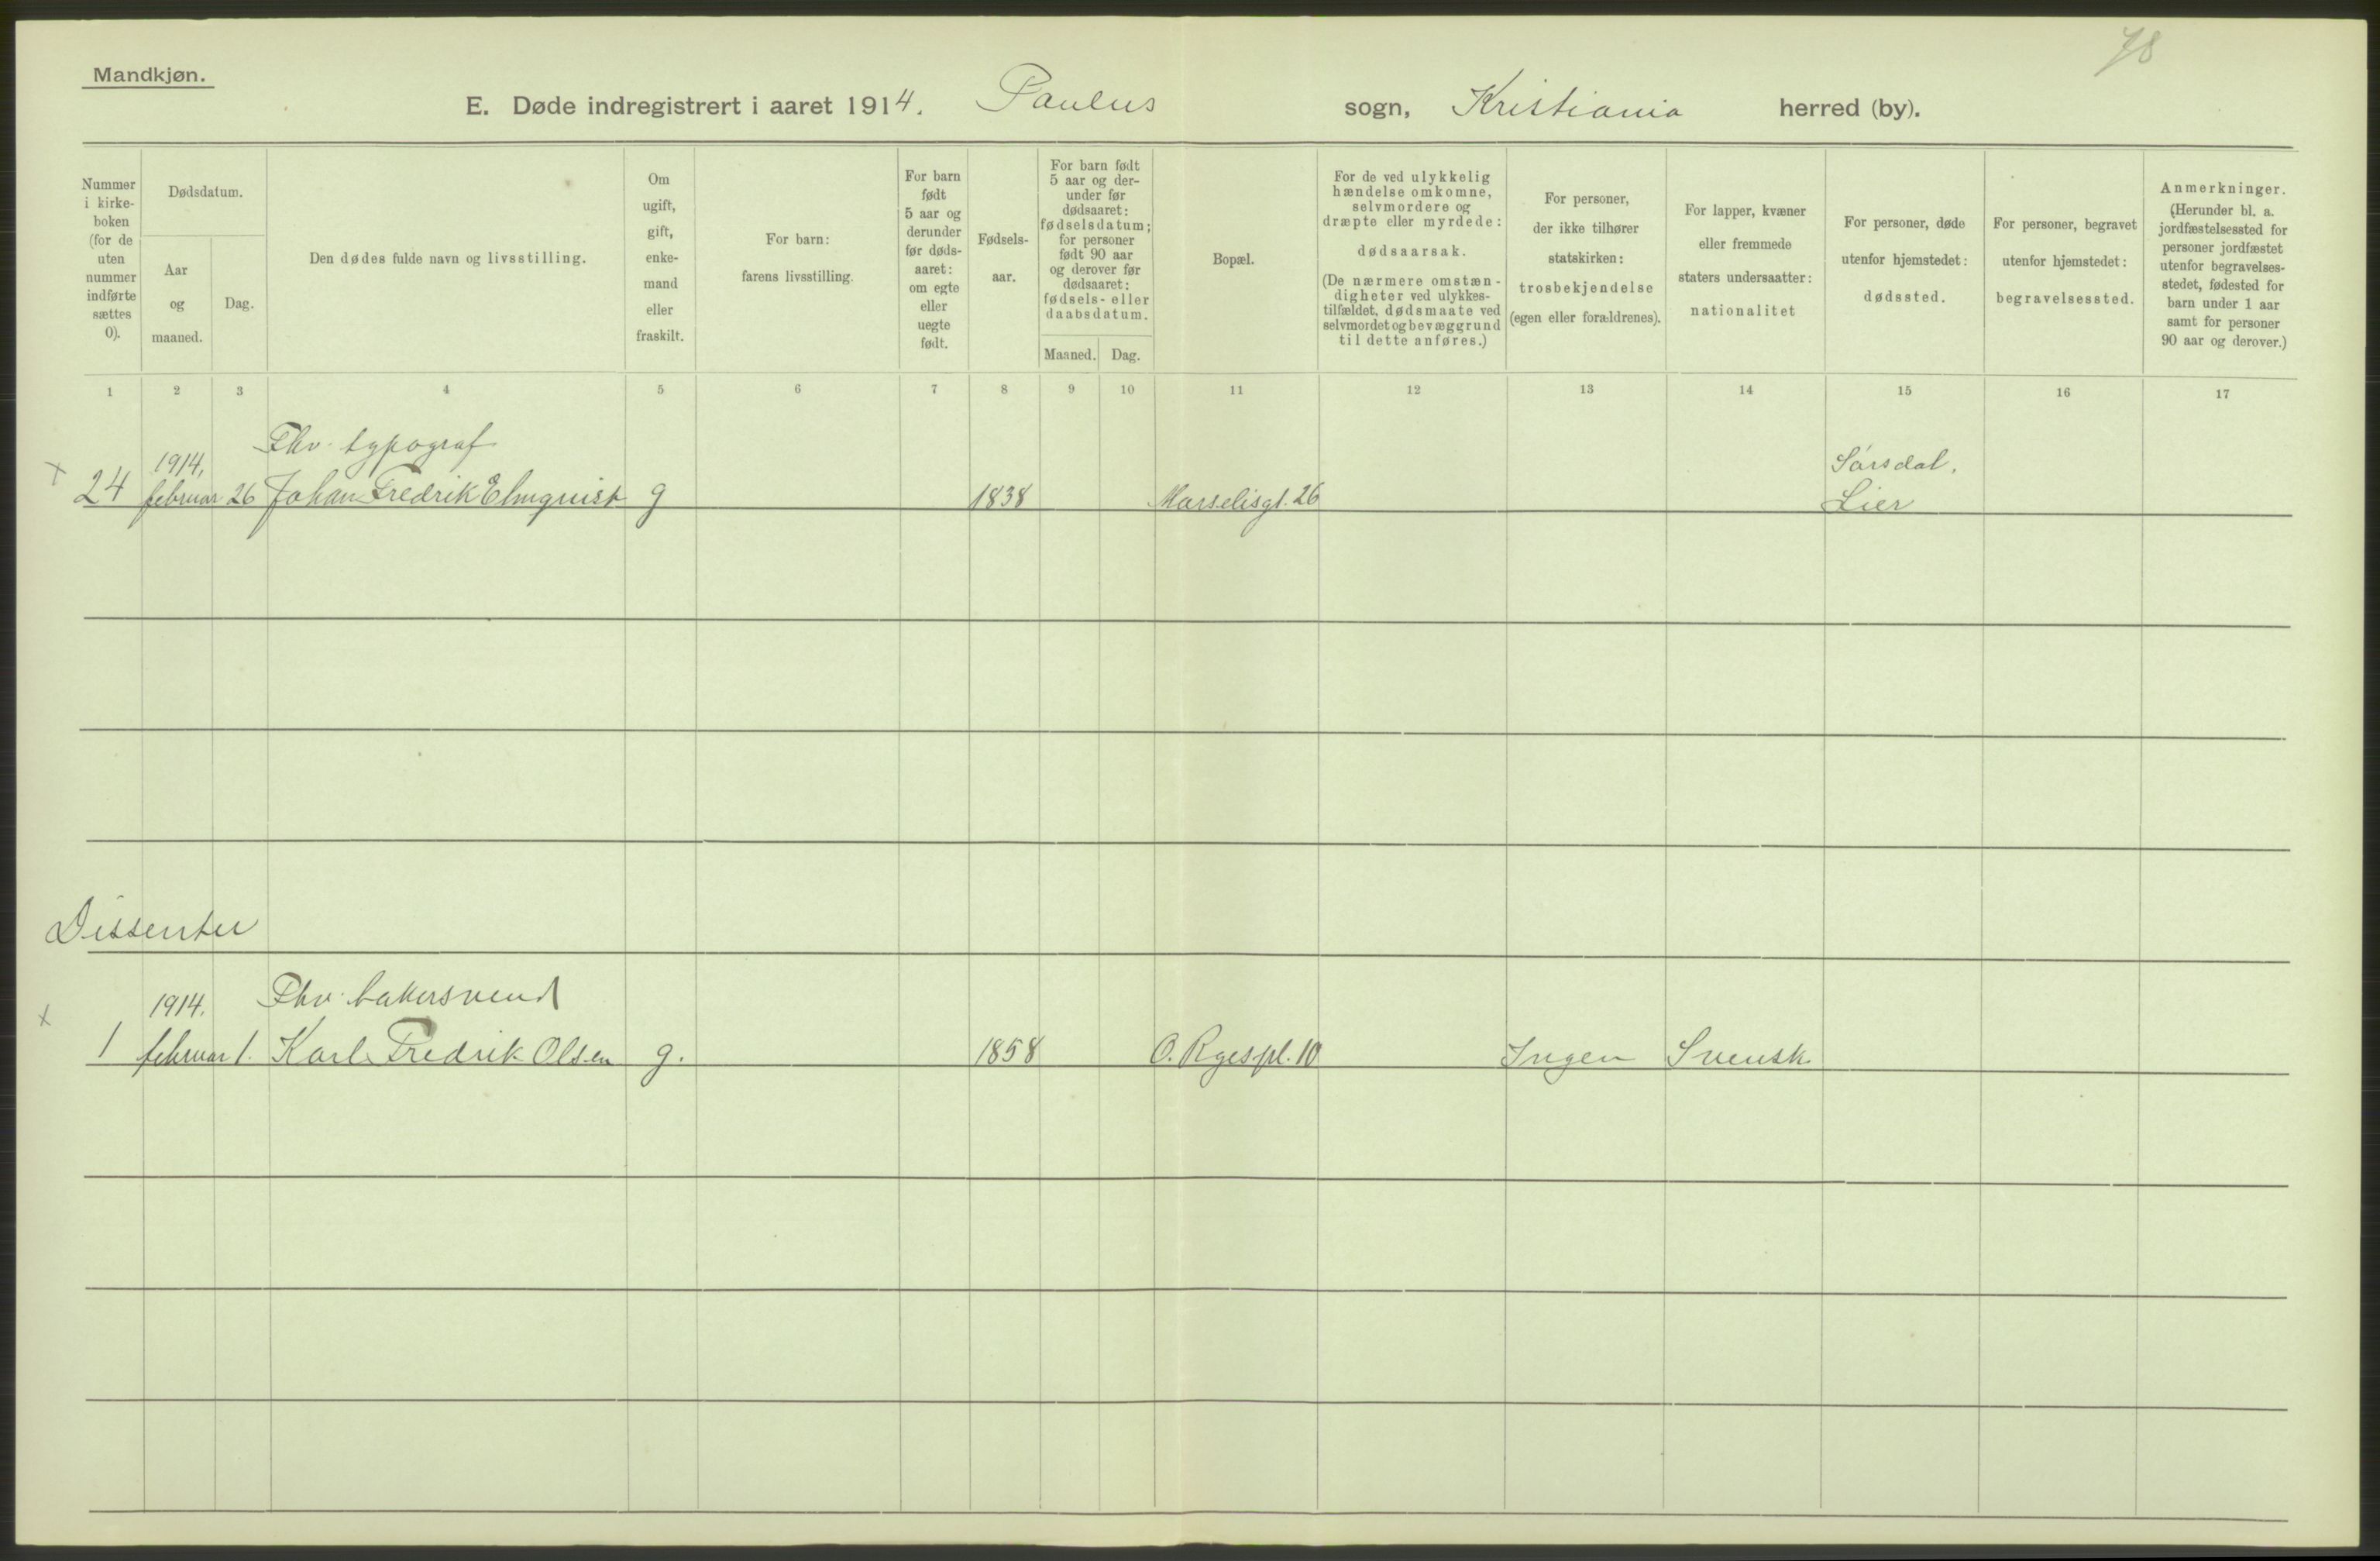 78
Mandkjøn.
E. Døde indregistrert i aaret 1914. Paulus sogn, Kristiania herred (by).
Nummer
i kirke-
boken
(for de
uten
nummer
indførte
sættes
0).
Dødsdatum.
Aar
og
maaned.
Dag.
Den dødes fulde navn og livsstilling.
Om
ugift,
gift,
enke-
mand
eller
fraskilt.
For barn:
farens livsstilling.
For barn
født
5 aar og
derunder
før døds-
aaret:
om egte
eller
uegte
født.
Fødsels-
aar.
For barn født
5 aar og der-
under før
dødsaaret:
fødselsdatum;
for personer
født 90 aar
og derover før
dødsaaret:
fødsels- eller
daabsdatum.
Maaned. Dag.
Bopæl.
For de ved ulykkelig
hændelse omkomne,
selvmordere og
dræpte eller myrdede:
dødsaarsak.
(De nærmere omstæn-
digheter ved ulykkes-
tilfældet, dødsmaate ved
selvmordet og bevæggrund
til dette anføres.)
For personer,
der ikke tilhører
statskirken:
trosbekjendelse
(egen eller forældrenes).
For lapper, kvæner
eller fremmede
staters undersaatter:
nationalitet
For personer, døde
utenfor hjemstedet:
dødssted.
For personer, begravet
utenfor hjemstedet:
begravelsessted.
Anmerkninger.
(Herunder bl. a.
jordfæstelsessted for
personer jordfæstet
utenfor begravelses-
stedet, fødested for
barn under 1 aar
samt for personer
90 aar og derover.)
1 2 3 4 5 6 7 8 9 10 11 12 13 14 15 16 17
1914, Fhv. typograf Sørsdal,
x 24 februar 26 Johan Fredrik Elmquist g 1838 Marselisgt. 26 Lier
Dissenter
1914. Fhv. bakersvend
x 1 februar 1. Karl Fredrik Olsen g. 1858 O. Ryespl. 10 Ingen Svensk